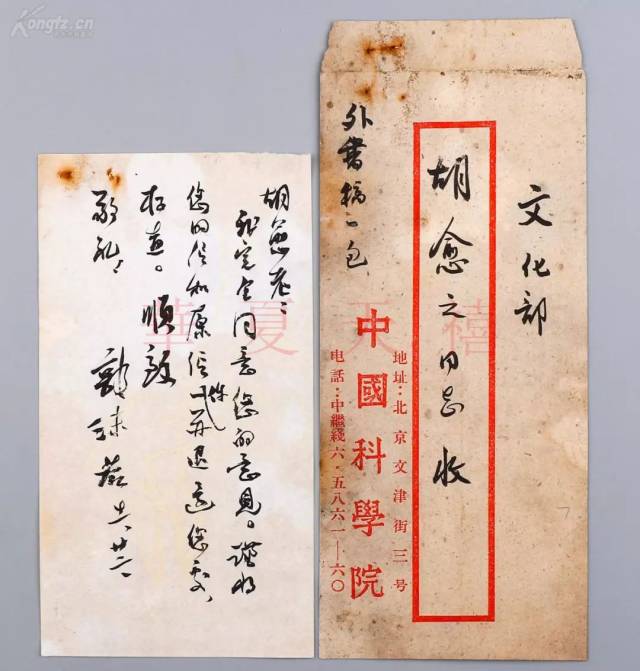 胡愈老：
我完全同意您的意见。谨将
您的信和原信一并退还您处，
存查。顺致
敬礼！
郭沫若 廿二
文化部
胡愈之同志 收
外書稿一包
地址：北京文津街三号
中國科學院
电話：中繼綫六·五八六一—六〇
華夏天禧
Kongfz.cn